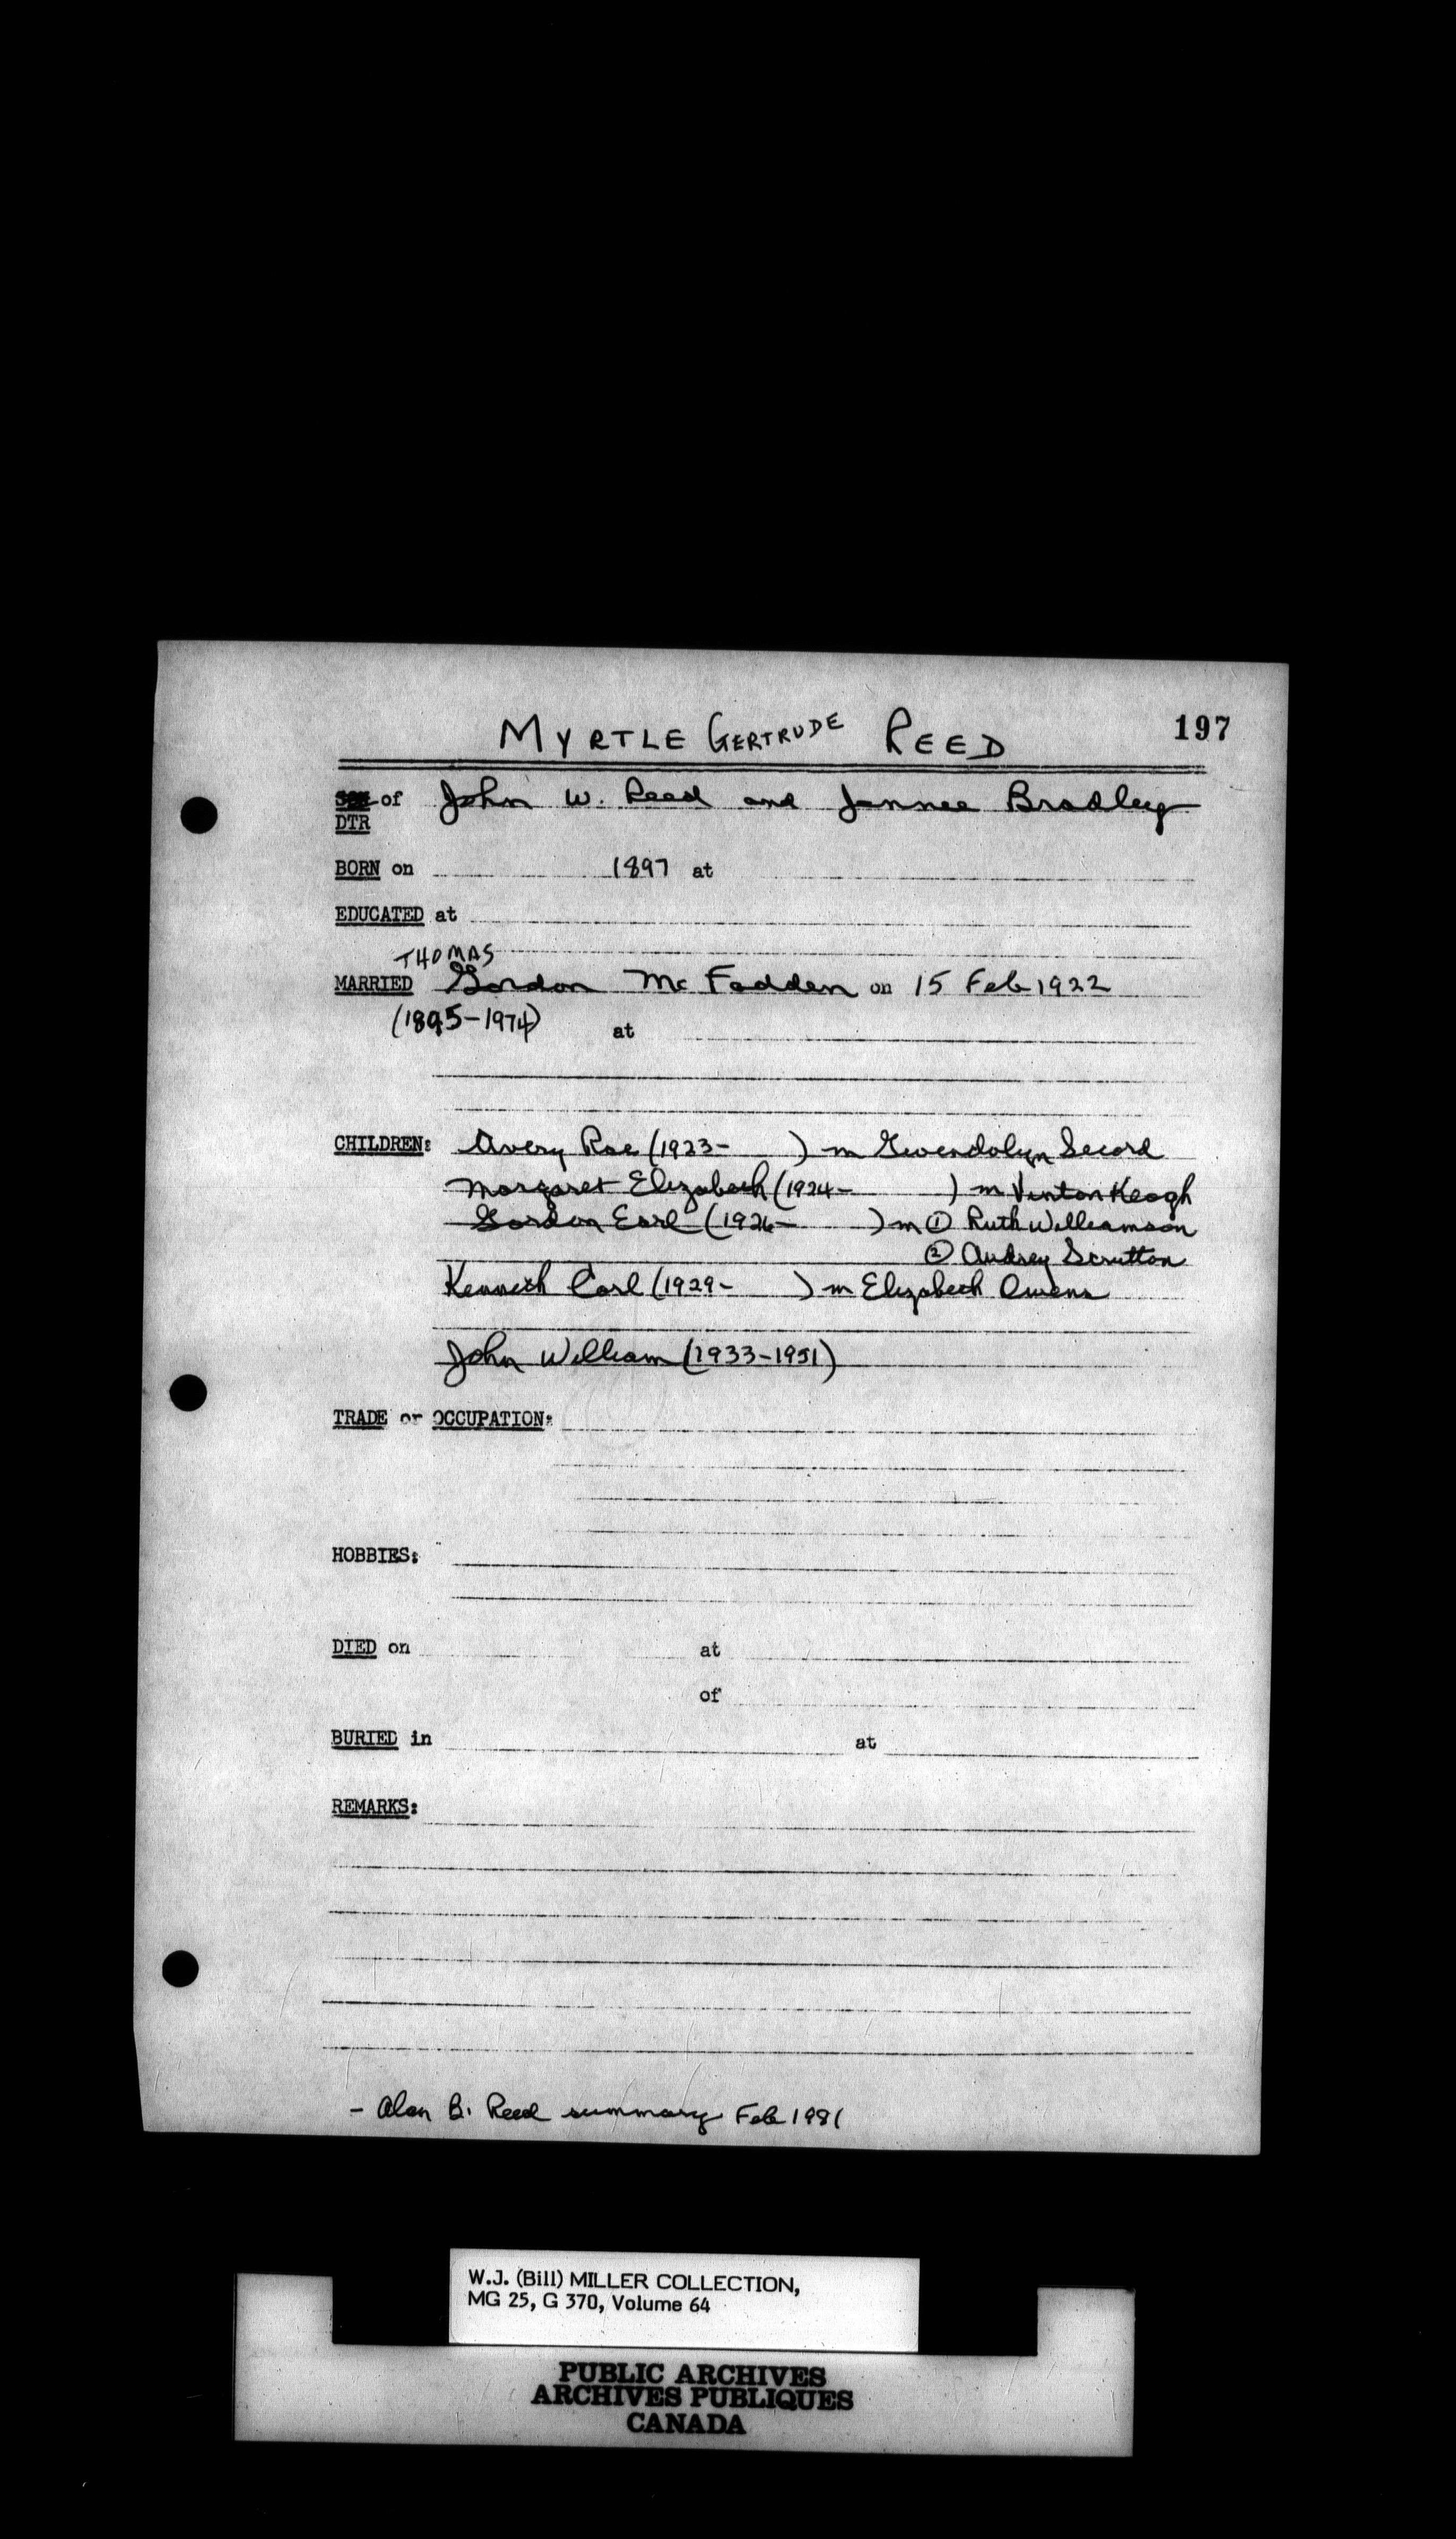 MYRTLE GERTRUDE REED
197
SON of John W. Reed and Jennee Bradley
DTR
BORN on 1897 at
EDUCATED at
THOMAS
MARRIED Gordon McFadden on 15 Feb 1922
(1895-1974) at
CHILDREN: Avery Rae (1923- ) m Gwendolyn Secord
Margaret Elizabeth (1924- ) m Vinton Keogh
Gordon Earl (1926- ) m ① Ruth Williamson
② Audrey Scrutton
Kenneth Carl (1929- ) m Elizabeth Owens
John William (1933-1951)
TRADE or OCCUPATION:
HOBBIES:
DIED on at
of
BURIED in at
REMARKS:
- Alan B. Reed summary Feb 1981
W.J. (Bill) MILLER COLLECTION,
MG 25, G 370, Volume 64
PUBLIC ARCHIVES
ARCHIVES PUBLIQUES
CANADA